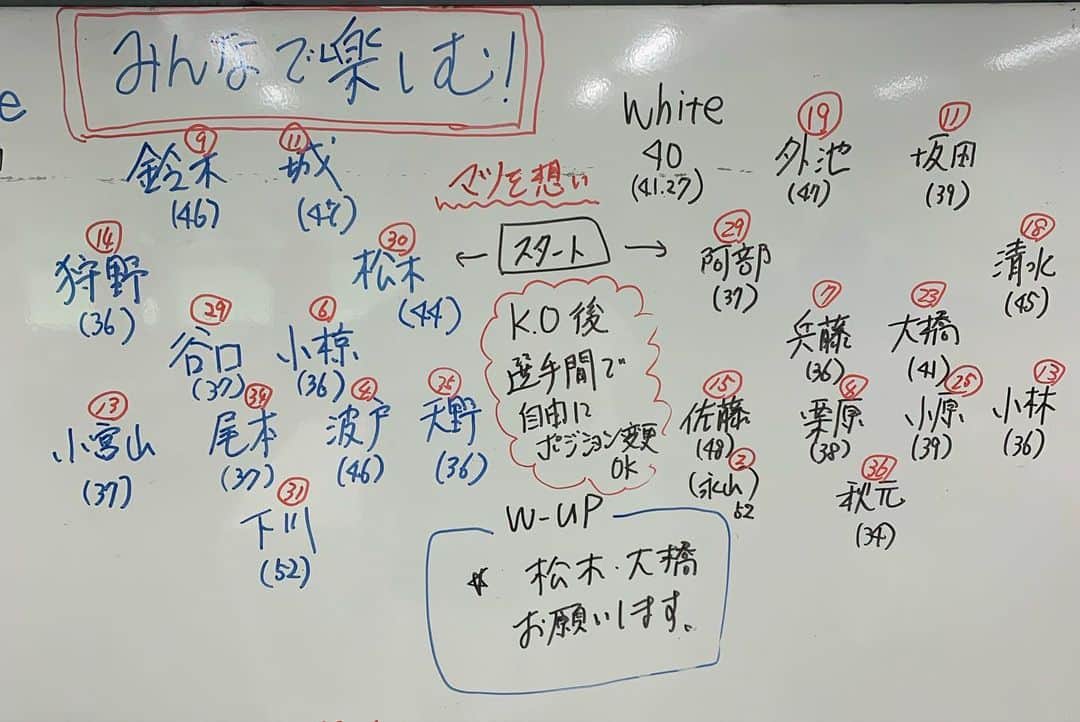 みんなで楽しむ!
e
White
40
(41.27)
マツを想い
スタート
⑨
鈴木
(46)
⑪
城
(47)
⑭
狩野
(36)
㉚
松木
(44)
㉙
谷口
(37)
⑥
小椋
(36)
⑬
小宮山
(37)
尾本
(37)
④
波戸
(46)
天野
(36)
㉛
下川
(52)
⑲
外池
(47)
⑪
坂田
(39)
㉙
阿部
(37)
⑱
清水
(45)
⑦
兵藤
(36)
㉓
大橋
(41)
⑮
佐藤
(48)
(永山)
52
⑧
栗原
(38)
㉕
小原
(39)
⑬
小林
(36)
㊱
秋元
(34)
K.O後
選手間で
自由に
ポジション変更
OK
W-UP
松木・大橋
お願いします。